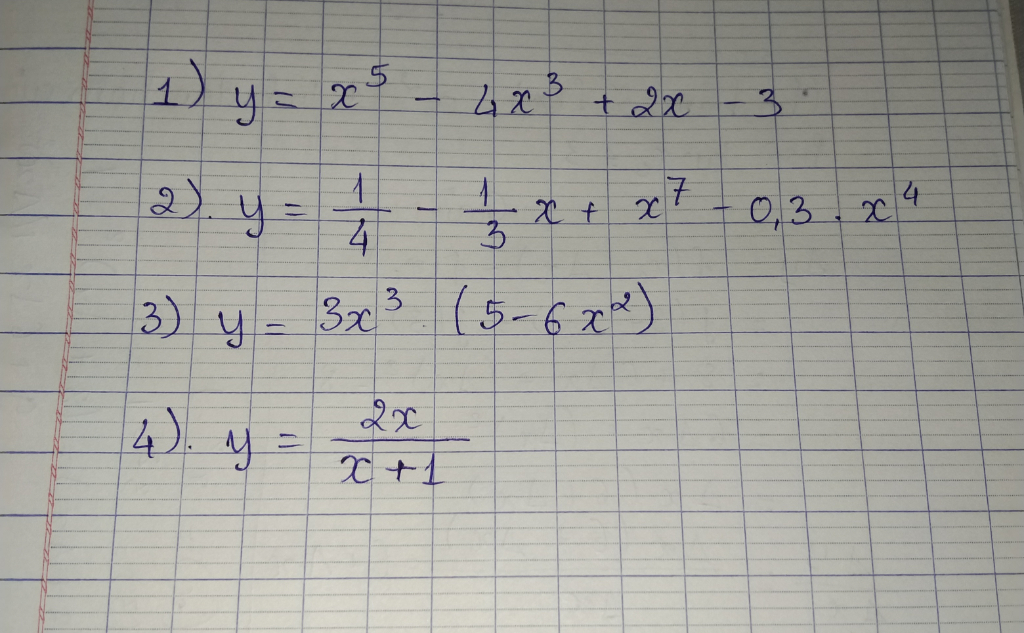 1) y = x⁵ - 4x³ + 2x - 3
2). y = 1/4 - 1/3 x + x⁷ - 0,3 . x⁴
3) y = 3x³ . (5 - 6x²)
4). y = 2x/(x + 1)